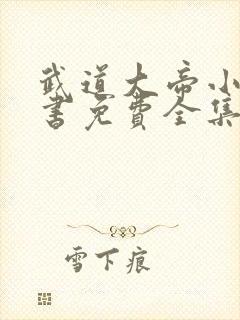 武道大帝小
书免费全集
雪下痕